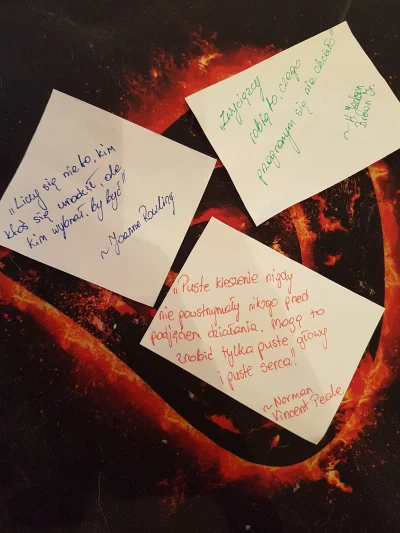 „Liczy się nie to, kim
ktoś się urodził, ale
kim wybrał, by być"
~ Joanne Rowling
„Zwycięzcy
robią to, czego
przegranym się nie chciało"
~ H. Jackson
Brown Jr.
„Puste kieszenie nigdy
nie powstrzymały nikogo przed
podjęciem działania. Mogą to
zrobić tylko puste głowy
i puste serca."
~ Norman
Vincent Peale